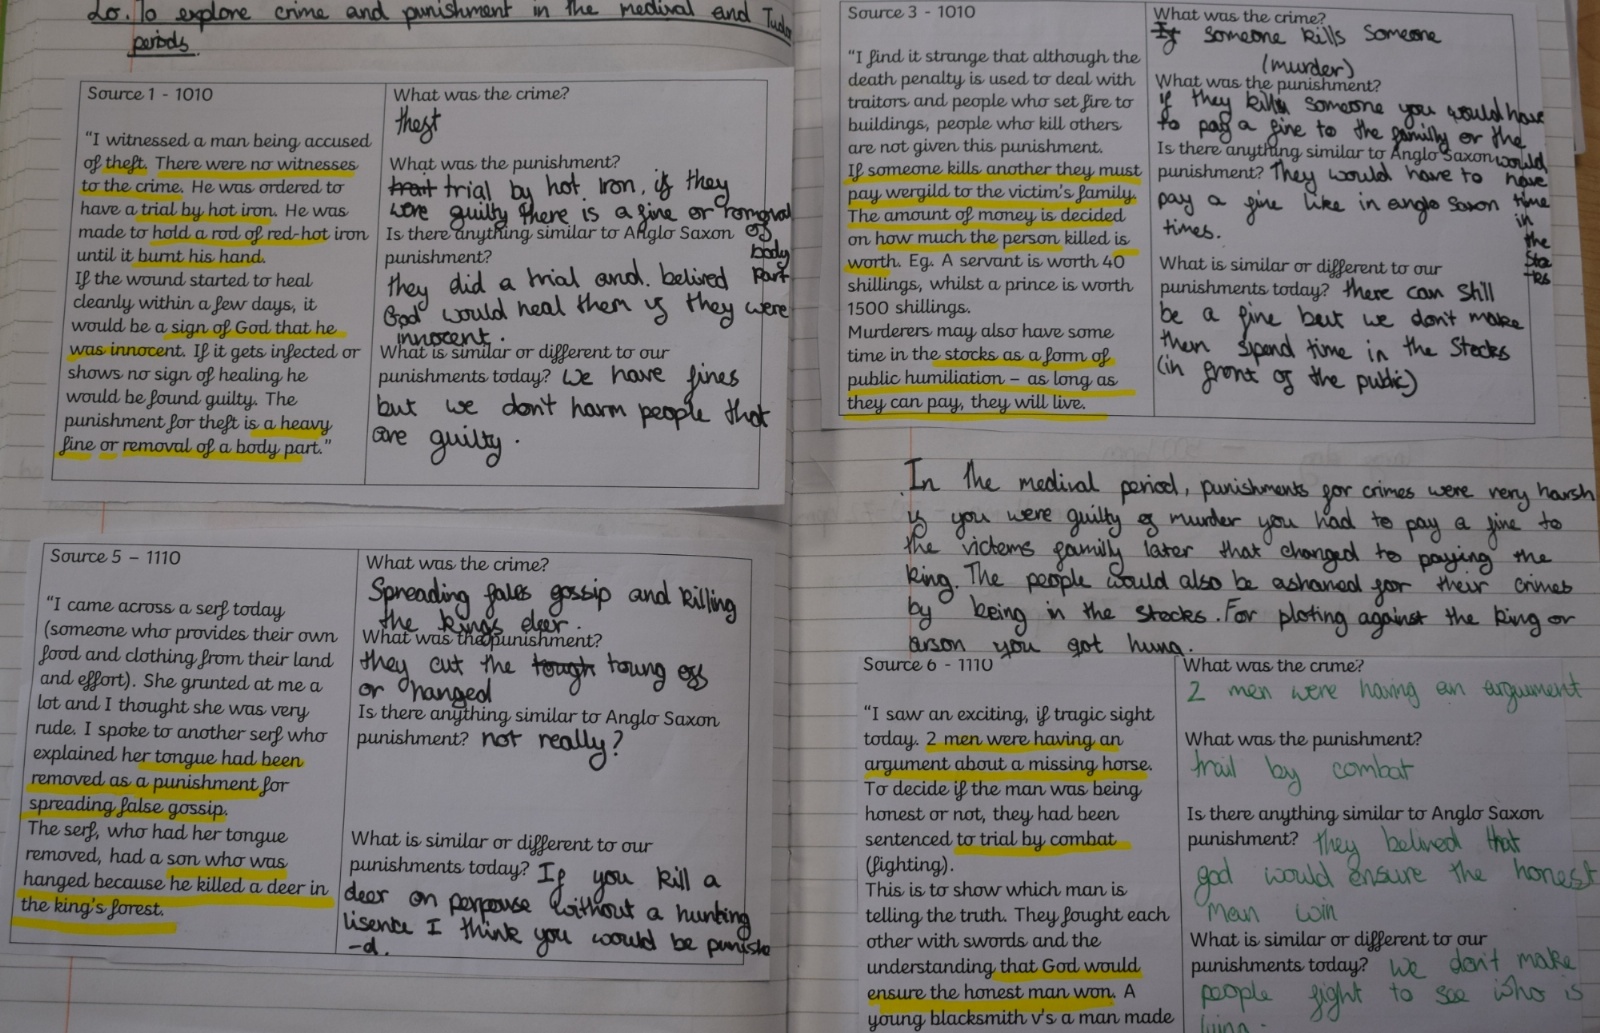 Lo. To explore crime and punishment in the medival and Tudor
periods.
Source 1 - 1010
"I witnessed a man being accused
of theft. There were no witnesses
to the crime. He was ordered to
have a trial by hot iron. He was
made to hold a rod of red-hot iron
until it burnt his hand.
If the wound started to heal
cleanly within a few days, it
would be a sign of God that he
was innocent. If it gets infected or
shows no sign of healing he
would be found guilty. The
punishment for theft is a heavy
fine or removal of a body part."
What was the crime?
theft
What was the punishment?
trial by hot iron, if they
were guilty there is a fine or romoval
of
body
part
Is there anything similar to Anglo Saxon
punishment?
they did a trial and. belived
God would heal them if they were
innocent.
What is similar or different to our
punishments today? we have fines
but we don't harm people that
are guilty.
Source 5 - 1110
"I came across a serf today
(someone who provides their own
food and clothing from their land
and effort). She grunted at me a
lot and I thought she was very
rude. I spoke to another serf who
explained her tongue had been
removed as a punishment for
spreading false gossip.
The serf, who had her tongue
removed, had a son who was
hanged because he killed a deer in
the king's forest.
What was the crime?
Spreading fales gossip and killing
the kings deer.
What was the punishment?
they cut the tough toung off
or hanged
Is there anything similar to Anglo Saxon
punishment? not really?
What is similar or different to our
punishments today? If you kill a
deer on perpouse without a hunting
lisence I think you would be punishe
-d.
Source 3 - 1010
"I find it strange that although the
death penalty is used to deal with
traitors and people who set fire to
buildings, people who kill others
are not given this punishment.
If someone kills another they must
pay wergild to the victim's family.
The amount of money is decided
on how much the person killed is
worth. Eg. A servant is worth 40
shillings, whilst a prince is worth
1500 shillings.
Murderers may also have some
time in the stocks as a form of
public humiliation – as long as
they can pay, they will live.
What was the crime?
If someone kills someone
(murder)
What was the punishment?
if they kills someone you would have
to pay a fine to the familly or the
would
have
time
in
the
sto
cks
Is there anything similar to Anglo Saxon
punishment? They would have to
pay a fine like in anglo saxon
times.
What is similar or different to our
punishments today? there can still
be a fine but we don't make
them spend time in the stocks
(in front of the public)
In the medival period, punishments for crimes were very harsh
if you were guilty of murder you had to pay a fine to
the victems familly later that changed to paying the
king. The people would also be ashamed for their crimes
by being in the stocks. For ploting against the king or
arson you got hung.
Source 6 - 1110
"I saw an exciting, if tragic sight
today. 2 men were having an
argument about a missing horse.
To decide if the man was being
honest or not, they had been
sentenced to trial by combat
(fighting).
This is to show which man is
telling the truth. They fought each
other with swords and the
understanding that God would
ensure the honest man won. A
young blacksmith v's a man made
What was the crime?
2 men were having an argument
What was the punishment?
trail by combat
Is there anything similar to Anglo Saxon
punishment? they belived that
god would ensure the honest
man win
What is similar or different to our
punishments today? we don't make
people fight to see who is
lying.